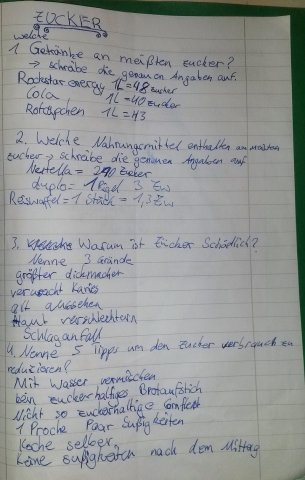 ZUCKER
welche
1. Getränke an meißten zucker?
→ schräbe die genauen Angaben auf.
Rockstar energy 1L=48 zucker
Cola 1L=40 zucker
1L=43
2. Welche Nahrungsmittel enthalten am meisten
zucker → schräbe die genauen Angaben auf
Nutella = Zucker
duplo= 1 Rigel 3 Zw
Reiswaffel=1 Stück = 1,3 Zw
3. Warum ist Zucker Schädlich?
Nenne 3 Gründe
größter dickmacher
verursacht Karies
alt aussehen
Haut verschlechtern
Schlaganfall
4. Nenne 5 Tipps um den Zucker verbrauch zu
reduzieren?
Mit Wasser vermischen
kein zuckerhaltiges Brotaufstich
Nicht so zuckerhaltige
1 Proche Paar Süßigkeiten
Koche selber
Keine süßigkeiten nach dem Mittag